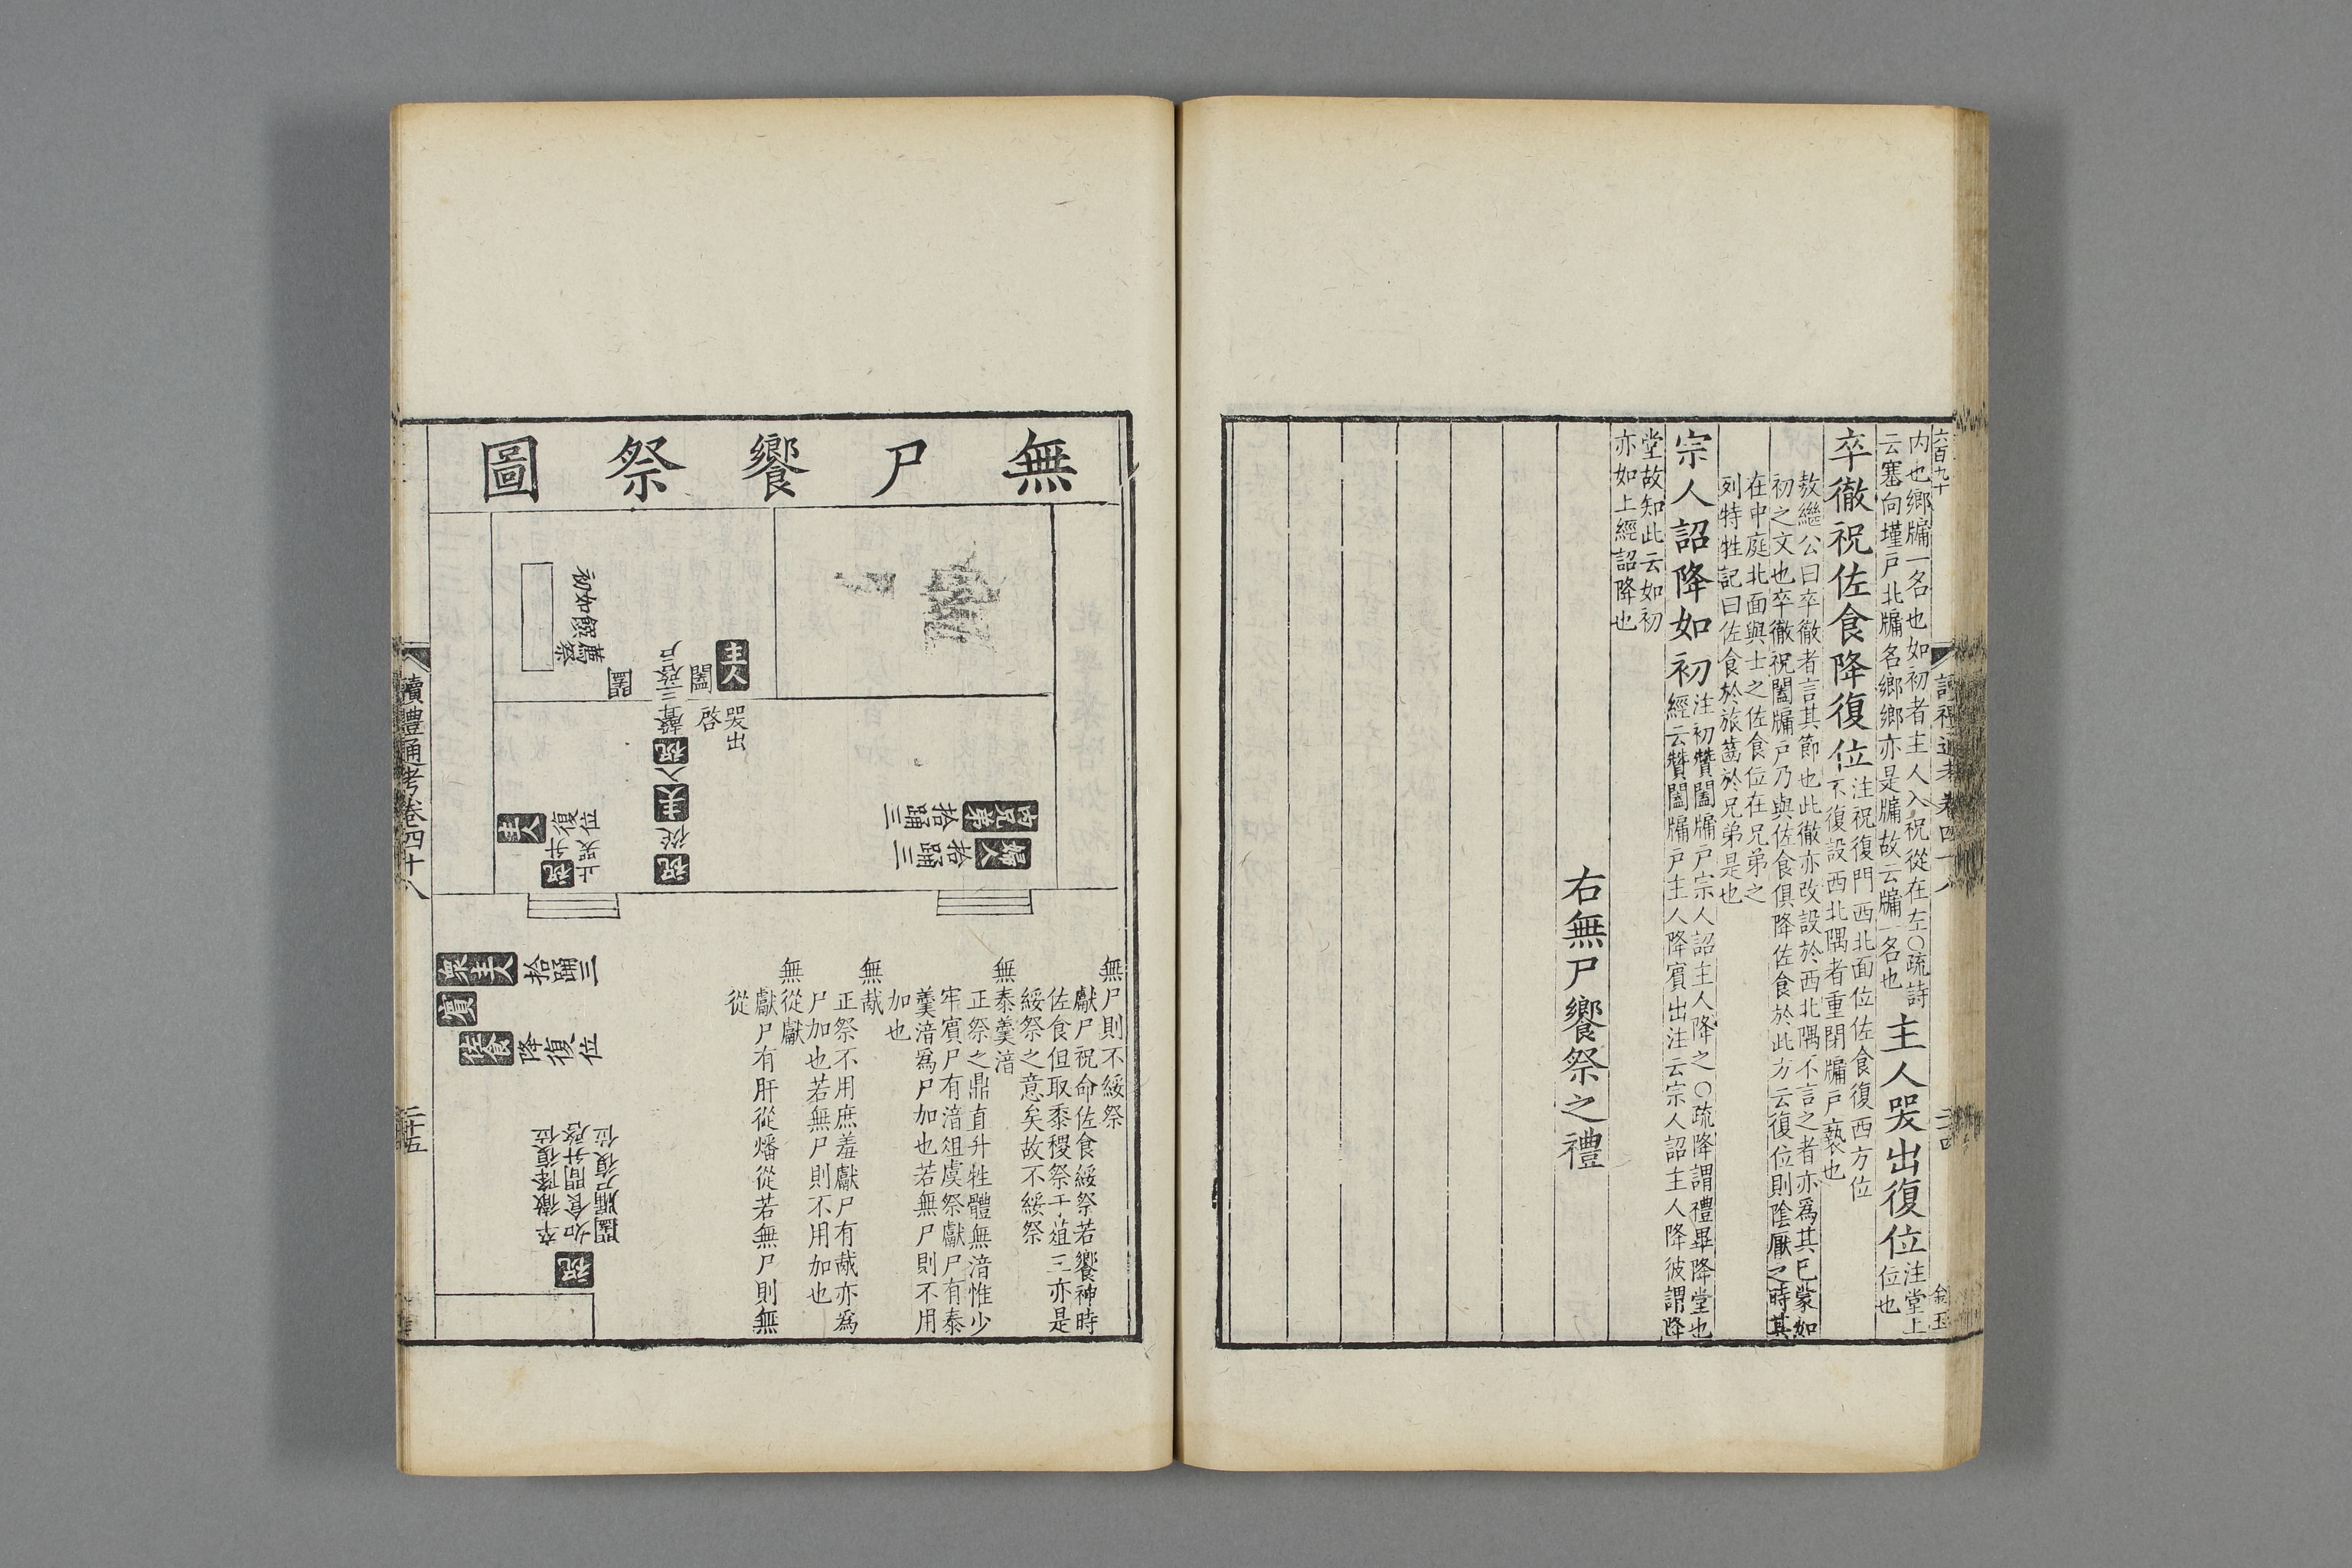 六百九十
內也鄉牖一名也如初者主人入祝從在左○疏詩
云塞向墐戶北牖名鄉鄉亦是牖故云牖一名也
主人哭出復位
注堂上
位也
卒徹祝佐食降復位
注祝復門西北面位佐食復西方位
不復設西北隅者重閉牖戶褻也
敖繼公曰卒徹者言其節也此徹亦改設於西北隅不言之者亦爲其已蒙如
初之文也卒徹祝闔牖戶乃與佐食俱降佐食於此方云復位則陰厭之時其
在中庭北面與士之佐食位在兄弟之
列特牲記曰佐食於旅齒於兄弟是也
宗人詔降如初
注初贊闔牖戶宗人詔主人降之○疏降謂禮畢降堂也
經云贊闔牖戶主人降賓出注云宗人詔主人降彼謂降
堂故知此云如初
亦如上經詔降也
右無尸饗祭之禮
無尸饗祭圖
無尸則不綏祭
獻尸祝命佐食綏祭若饗神時
佐食但取黍稷祭于苴三亦是
綏祭之意矣故不綏祭
無泰羹湆
正祭之鼎直升牲體無湆惟少
牢賓尸有湆俎虞祭獻尸有泰
羹湆爲尸加也若無尸則不用
加也
無胾
正祭不用庶羞獻尸有胾亦爲
尸加也若無尸則不用加也
無從獻
獻尸有肝從燔從若無尸則無
從
主人
哭出
闔
啓
聲三啓戶
祝
主人
從
祝
闔
薦祭
初如饌
主人
祝
升復位
止哭
內兄弟
拾踊三
婦人
拾踊三
眾主人
拾踊三
賓
佐食
降復位
祝
闔牖戶復位
如食間升啓
卒徹降復位
讀禮通考卷四十八
二十五